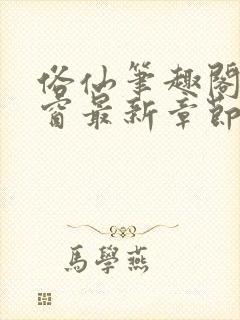 俗仙筆趣閣
窗最新章節
馬學燕